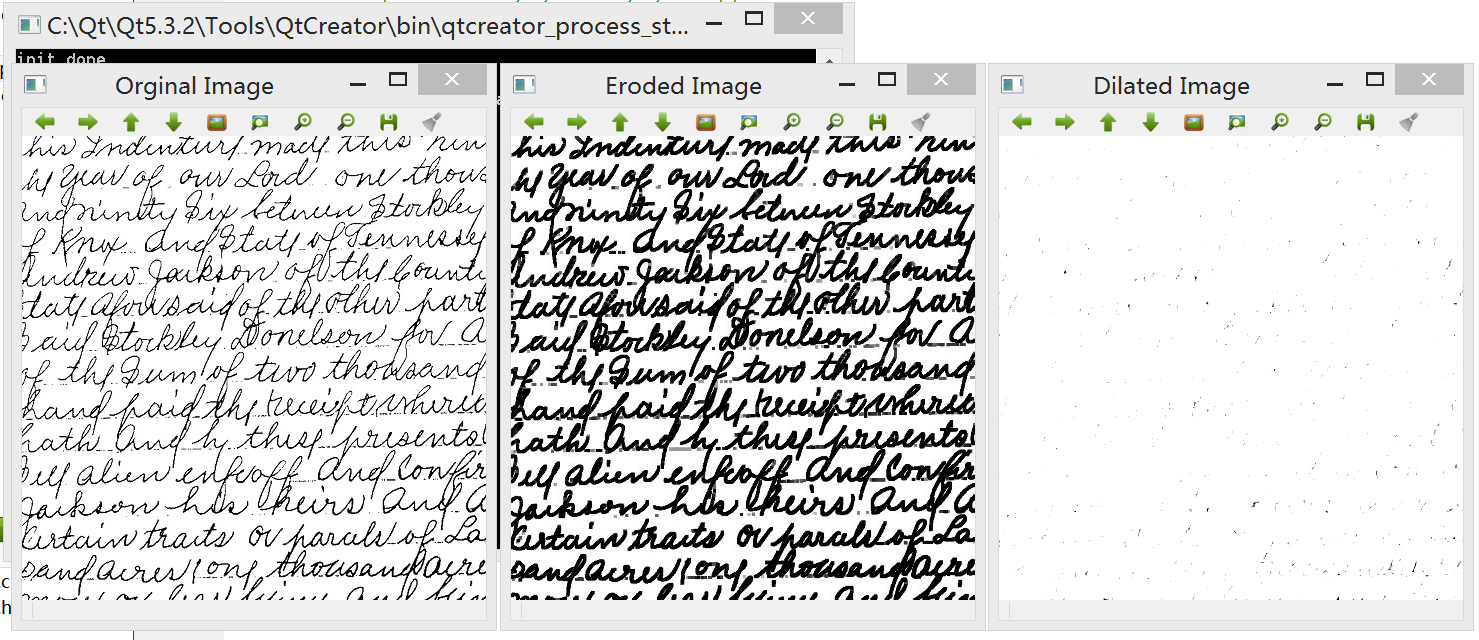 C:\Qt\Qt5.3.2\Tools\QtCreator\bin\qtcreator_process_st...
init done
Orginal Image
his Indenture made this nin
by Year of our Lord one thous
and ninety Six between Stockley
of Knox and State of Tennessee
Andrew Jackson of the County
tate aforesaid of the other part
Said Stockley Donelson for A
of the Sum of two thousand
hand paid the receipt wherea
hath And by these presents
Sell alien enfeoff And Confir
Jackson his heirs And A
Certain traits or parcels of La
sand acres long thousand acre
Eroded Image
his Indenture made this nin
by Year of our Lord one thous
and ninety Six between Stockley
of Knox and State of Tennessee
Andrew Jackson of the County
tate aforesaid of the other part
Said Stockley Donelson for A
of the Sum of two thousand
hand paid the receipt wherea
hath And by these presents
Sell alien enfeoff And Confir
Jackson his heirs And A
Certain traits or parcels of La
sand acres long thousand acre
Dilated Image